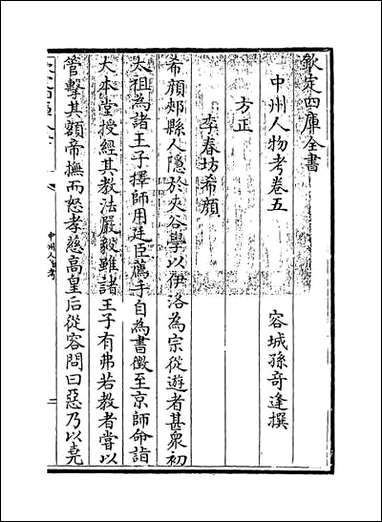 欽定四庫全書
中州人物考卷五
容城孫奇逢撰
方正
李春坊希顏
希顏郟縣人隱於夾谷學以伊洛為宗從遊者甚衆初
太祖為諸王子擇師用廷臣薦手自為書徵至京師命詣
大本堂授經其教法嚴毅雖諸王子有弗若教者嘗以
管擊其額帝撫而怒孝慈高皇后從容問曰惡乃以堯
中州人物考